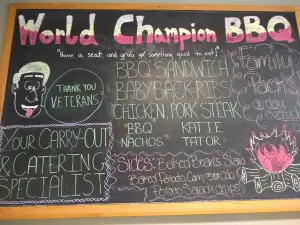 World Champion BBQ
"Have a seat and grab get something good to eat!"
THANK YOU
VETERANS
BBQ SANDWICH
BABYBACK RIBS
CHICKEN, PORK STEAK
BBQ KATIE
NACHOS TATOR
Family
Packs
YOUR CARRY-OUT
& CATERING
SPECIALIST
Sides: Baked Beans Slaw
Baked Potato Corn
Potato Salad Chips